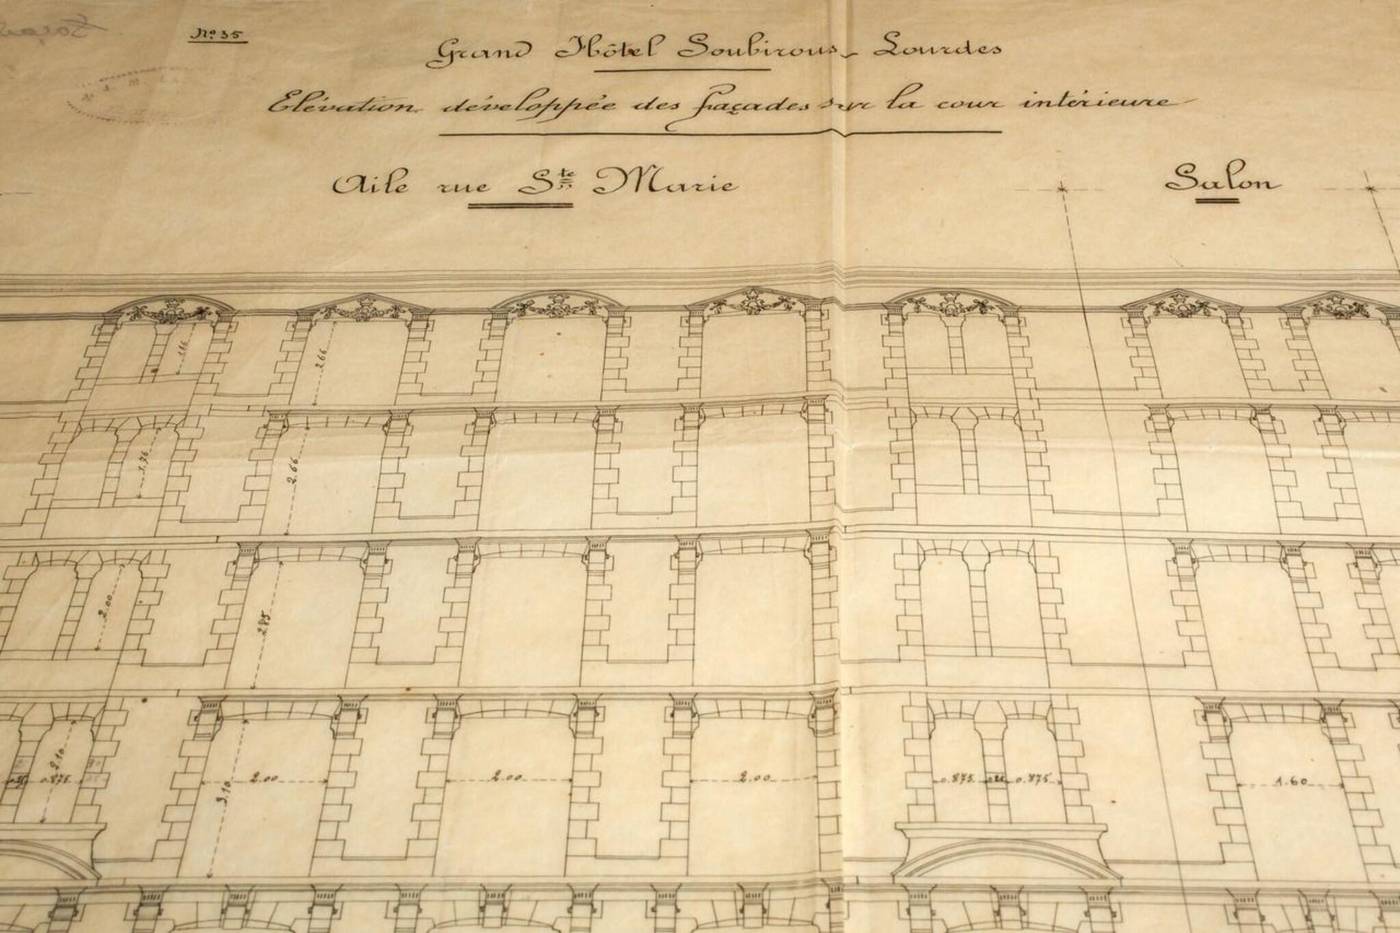 No 35
Grand Hôtel Soubirous - Lourdes
Elévation développée des façades sur la cour intérieure
Aile rue Ste Marie
Salon
2.66
1.96
2.66
2.00
2.85
2.10
3.10
0.875
2.00
2.00
2.00
0.875
0.875
1.60